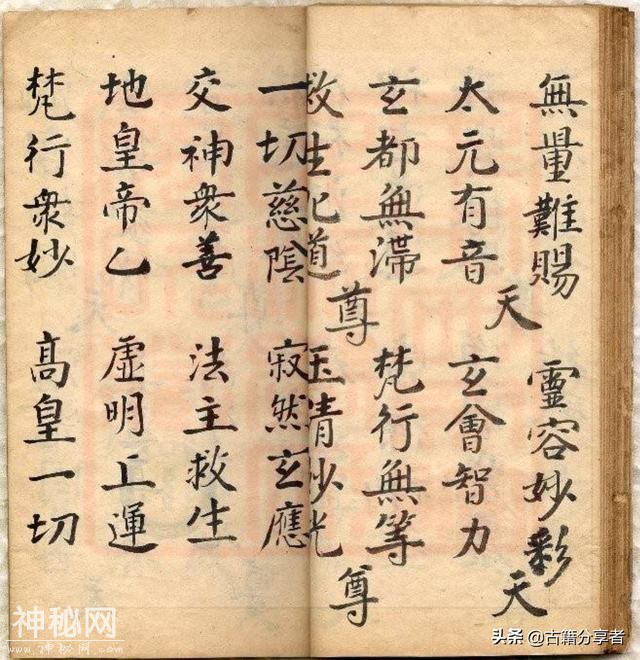 無量難賜 靈容妙彩
天 天
太元有音 玄會智力
玄都無滯 梵行無等
尊 尊
救生化道 玉清妙光
一切慈陰 寂然玄應
交神衆善 法主救生
地皇帝乙 虛明工運
梵行衆妙 高皇一切
神秘网
头条 @古籍分享者